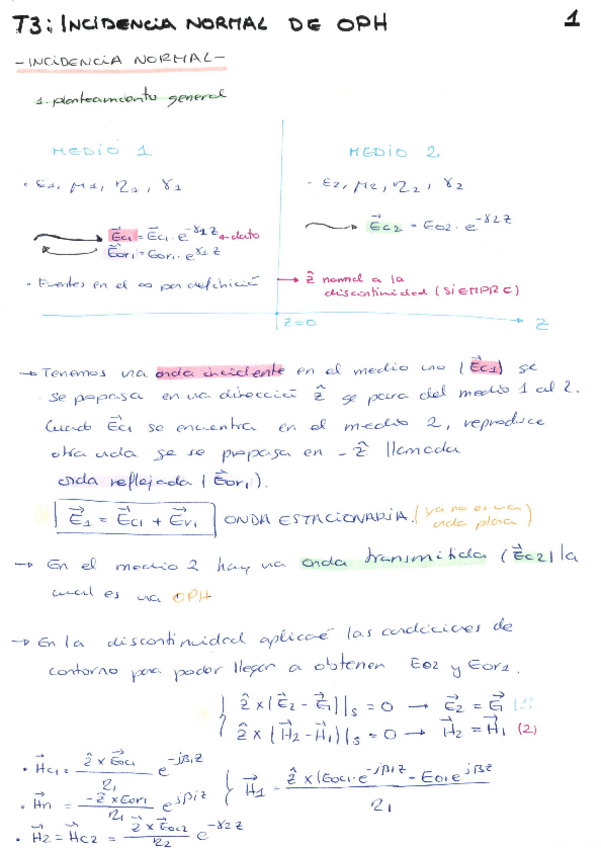 T3: INCIDENCIA NORMAL DE OPH 1
-INCIDENCIA NORMAL-
1. planteamiento general
MEDIO 1 MEDIO 2
· ε1, μ1, η1, γ1 - ε2, μ2, η2, γ2
E⃗c1 = E⃗c1 · e^-γ1z ← dato
E⃗or1 = Eor1 · e^γ1z
E⃗c2 = E02 · e^-γ2z
· Fuentes en el ∞ por definición
→ ẑ normal a la
discontinuidad (SIEMPRE)
z=0 z
→ Tenemos una onda incidente en el medio uno (E⃗c1) se
se propaga en una dirección ẑ se para del medio 1 al 2.
Cuando E⃗c1 se encuentra en el medio 2, reproduce
otra onda se se propaga en -ẑ llamada
onda reflejada (E⃗or1).
E⃗1 = E⃗c1 + E⃗r1 ONDA ESTACIONARIA. (ya no es una
onda plana)
→ En el medio 2 hay una onda transmitida (E⃗c2) la
cual es una OPH
→ En la discontinuidad aplicaré las condiciones de
contorno para poder llegar a obtener E02 y Eor1.
ẑ x (E⃗2 - E⃗1)|s = 0 → E⃗2 = E⃗1 (1)
ẑ x (H⃗2 - H⃗1)|s = 0 → H⃗2 = H⃗1 (2)
· H⃗c1 = ẑ x E⃗oc1 / η1 e^-jβ1z
· H⃗r1 = -ẑ x Eor1 / η1 e^jβ1z
H⃗1 = ẑ x (Eoc1·e^-jβ1z - Eo1e^jβz / η1
· H⃗2 = H⃗c2 = ẑ x E⃗oc2 / η2 e^-γ2z